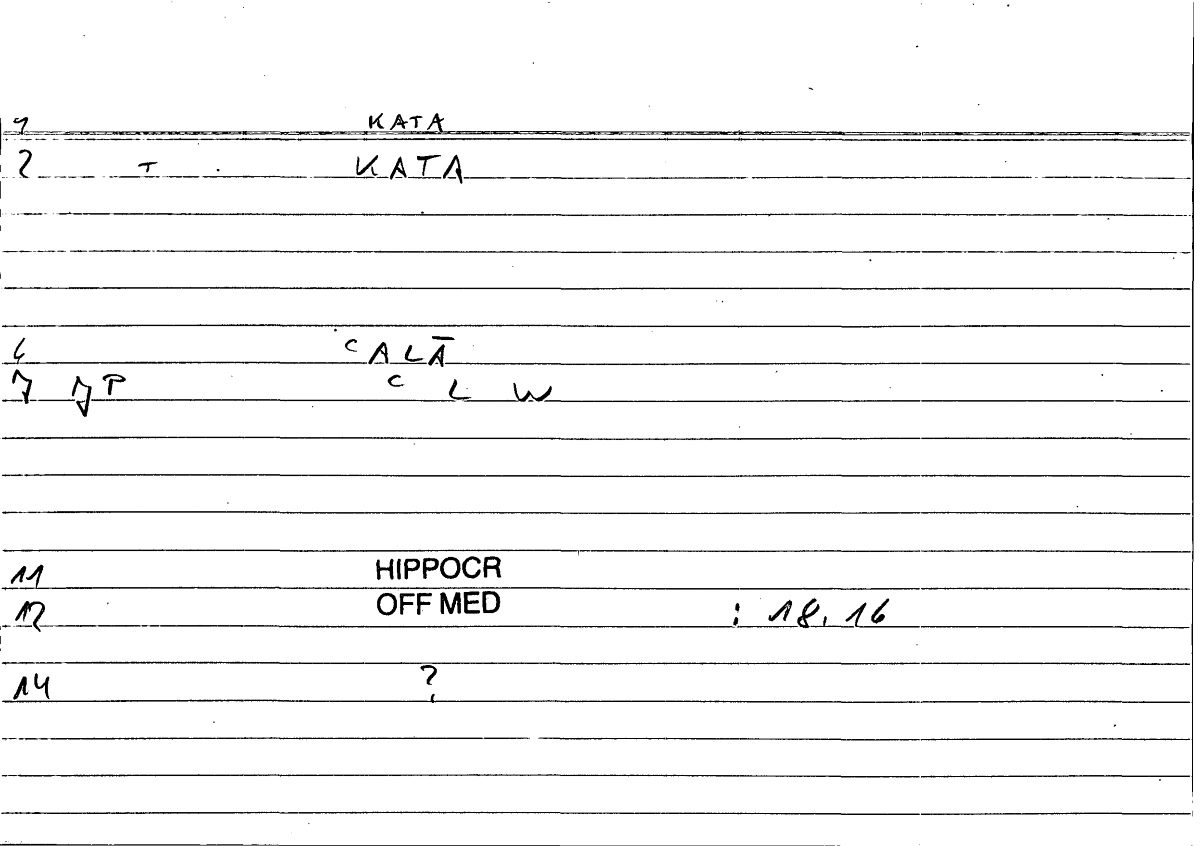 1 KATA
2 T . KATA
6 ᶜALĀ
7 JP ᶜ L W
11 HIPPOCR
12 OFF MED : 18.16
14 ?